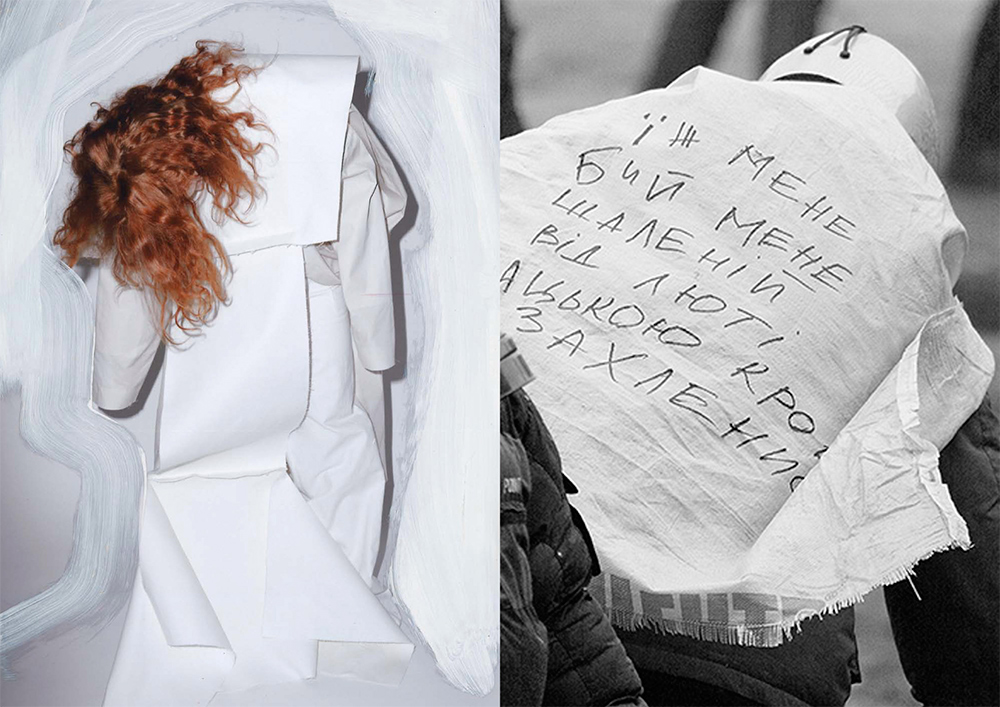 ЇЖ МЕНЕ
БИЙ МЕНЕ
ШАЛЕНІЙ
ВІД ЛЮТІ.
АЦЬКОЮ КРО
ЗАХЛЕНИ